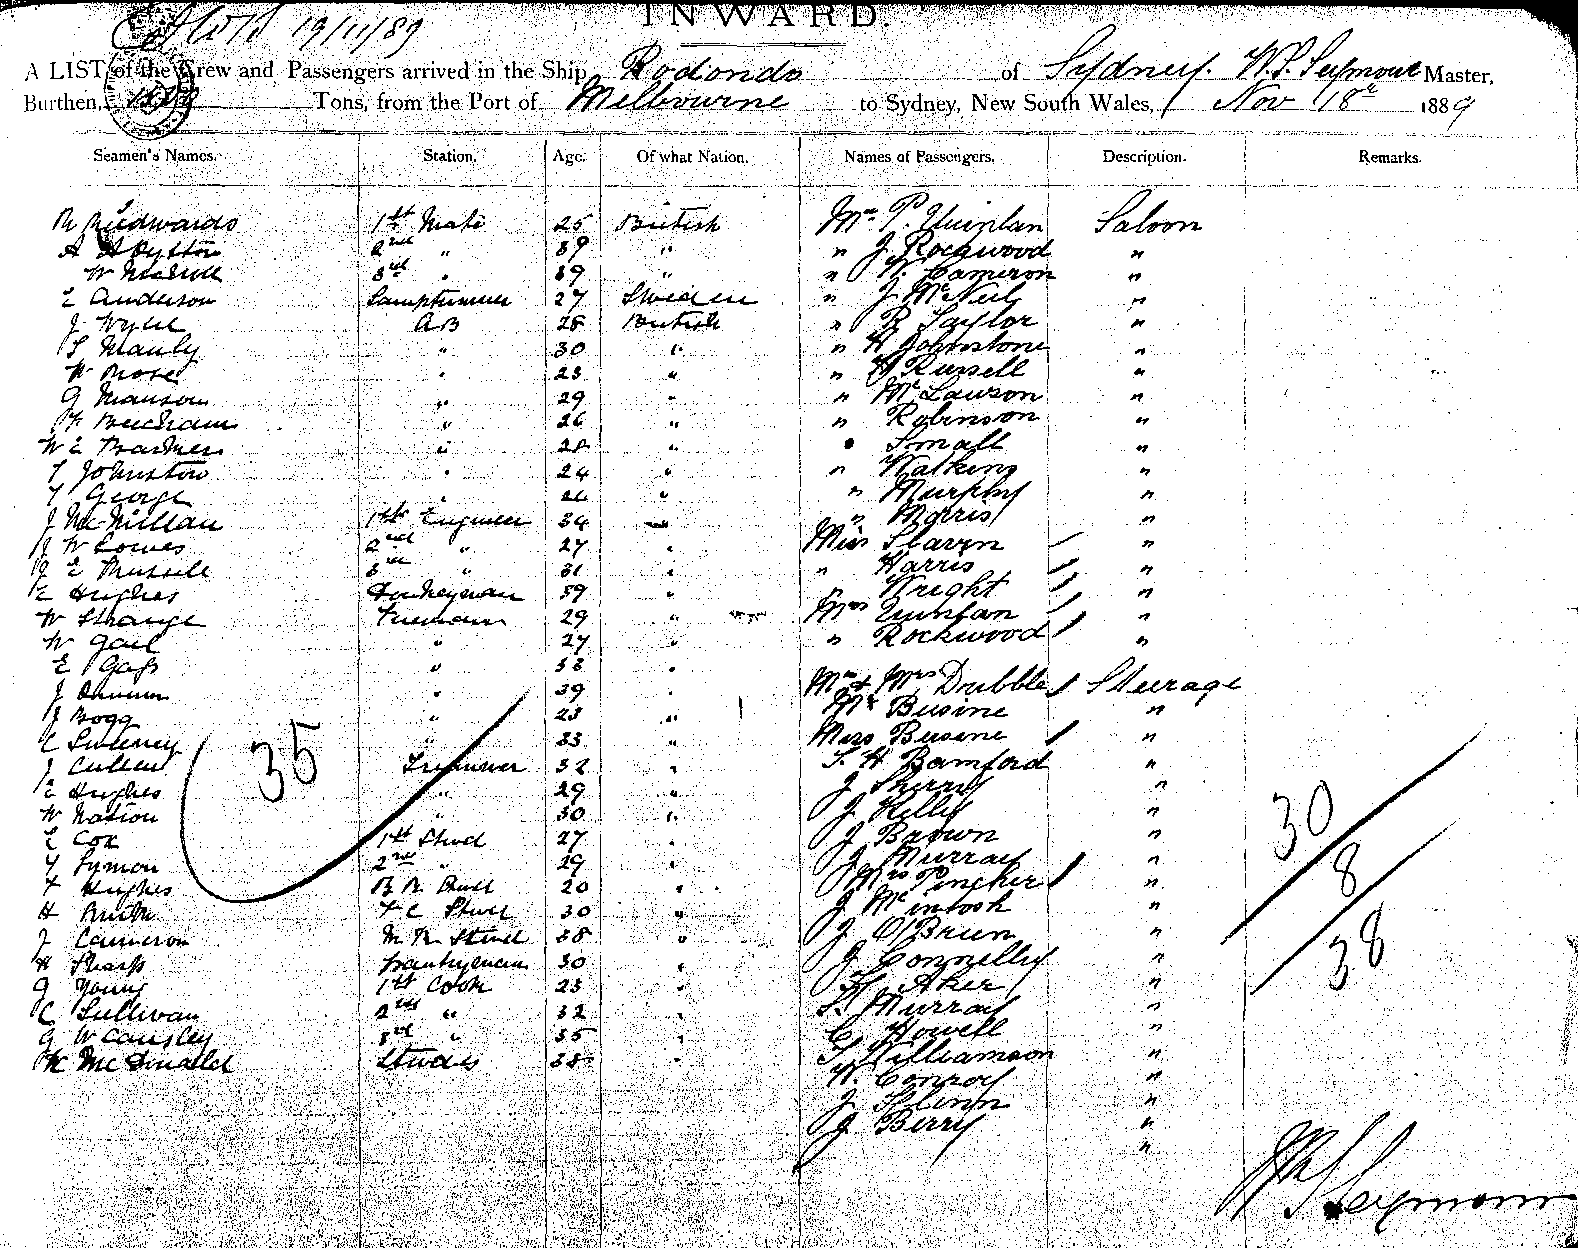 INWARD.
19/11/89
A LIST of the Crew and Passengers arrived in the Ship Rodondo of Sydney. W.S. Seymour Master,
Burthen, Tons, from the Port of Melbourne to Sydney, New South Wales, Nov 18th 1889
Seamen's Names. Station. Age. Of what Nation. Names of Passengers. Description. Remarks.
Edwards 1st Mate 25 British Mr P. Quinlan Saloon
A 2nd " 39 " " J Rockwood "
W 3rd " 39 " " W. Cameron "
E Anderson Lamptrimmer 27 Sweden " J McNeil "
J Wylie AB 28 British " R Taylor "
S Manly " 30 " " H Johnstone "
W More " 23 " " Russell "
G Manson " 29 " " Mc Lawson "
F Beecham " 26 " " Robinson "
W E " 28 " " Small "
T Johnston " 24 " " Watkins "
T George " 26 " " Murphy "
J McMillan 1st Engineer 34 " " Morris "
J W Lowes 2nd " 27 " Miss Slaven "
J E Russell 3rd " 31 " " Harris "
E Hughes Donkeyman 39 " " Wright "
W Strange Fireman 29 " Mrs Quinlan "
W Gail " 27 " " Rockwood "
E Gass " 32 "
J " 39 " Mr & Mrs Dubble Steerage
J Bogg " 23 " Mr Busine "
C Sweeney " 33 " Miss Busine "
J Cullen Trimmer 32 " T. H Bamford "
E Hughes " 29 " J Sherry "
W Nation " 30 " J Kelly "
E Cox 1st Stwd 27 " J Brown "
T Symon 2nd " 29 " J Murray "
F Hughes 20 " Mrs Pincher "
H F C Stwd 30 " J McIntosh "
J Cameron Stwd 38 " J O'Brien "
H Sharp Pantryman 30 " J Connelly "
G Young 1st Cook 23 " Aker "
C Sullivan 2nd " 32 " S. Murray "
G W Causley 3rd " 35 " C Howell "
McDonald Studes 38 " T Williamson "
W. Conroy "
J Flinn "
J Berry "
"
35
30
8
38
W S Seymour